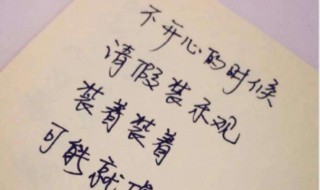 不开心的时候
请假装乐观
装着装着
可能就